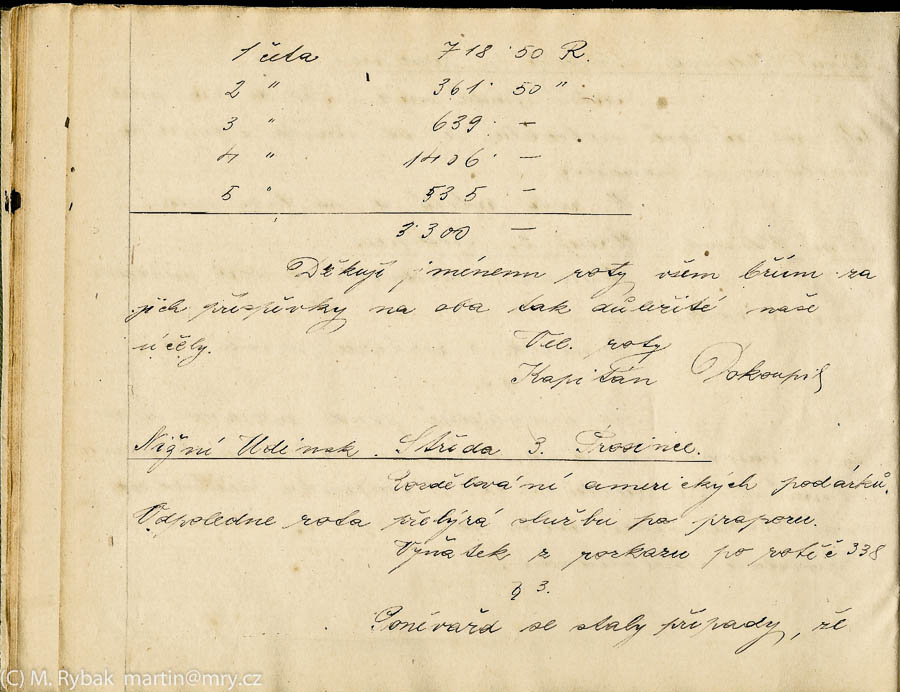 1 četa 718 50 R.
2 " 361 50 "
3 " 639 –
4 " 1406 –
5 " 535 –
3300 –
Děkuji jménem roty všem břím za
jich příspěvky na oba tak důležité naše
účely.
Vel. roty
Kapitán Dokoupil
Nižní Udinsk. Středa 3. Prosince.
Rozdělování amerických podárků.
Odpoledne rota přebýrá službu po praporu.
Výňatek z rozkazu po rotě č 338
§ 3.
Poněvařd se staly případy, že
(C) M. Rybak martin@mry.cz